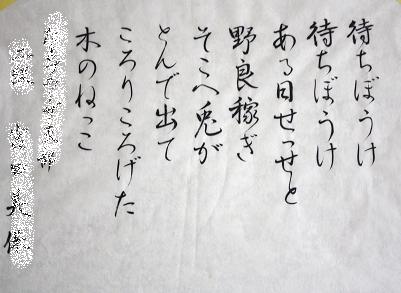 待ちぼうけ
待ちぼうけ
ある日せっせと
野良稼ぎ
そこへ兎が
とんで出て
ころりころげた
木のねっこ